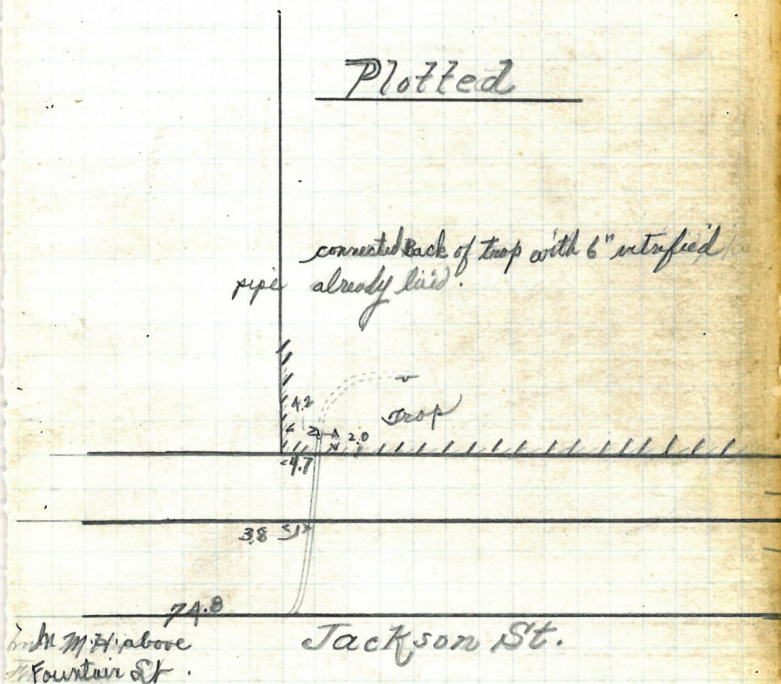 Plotted
connected back of trap with 6" vitrified
pipe already laid.
4.2
Trap
2.0
4.7
3.8
74.8
M.H. above
Fountain St.
Jackson St.